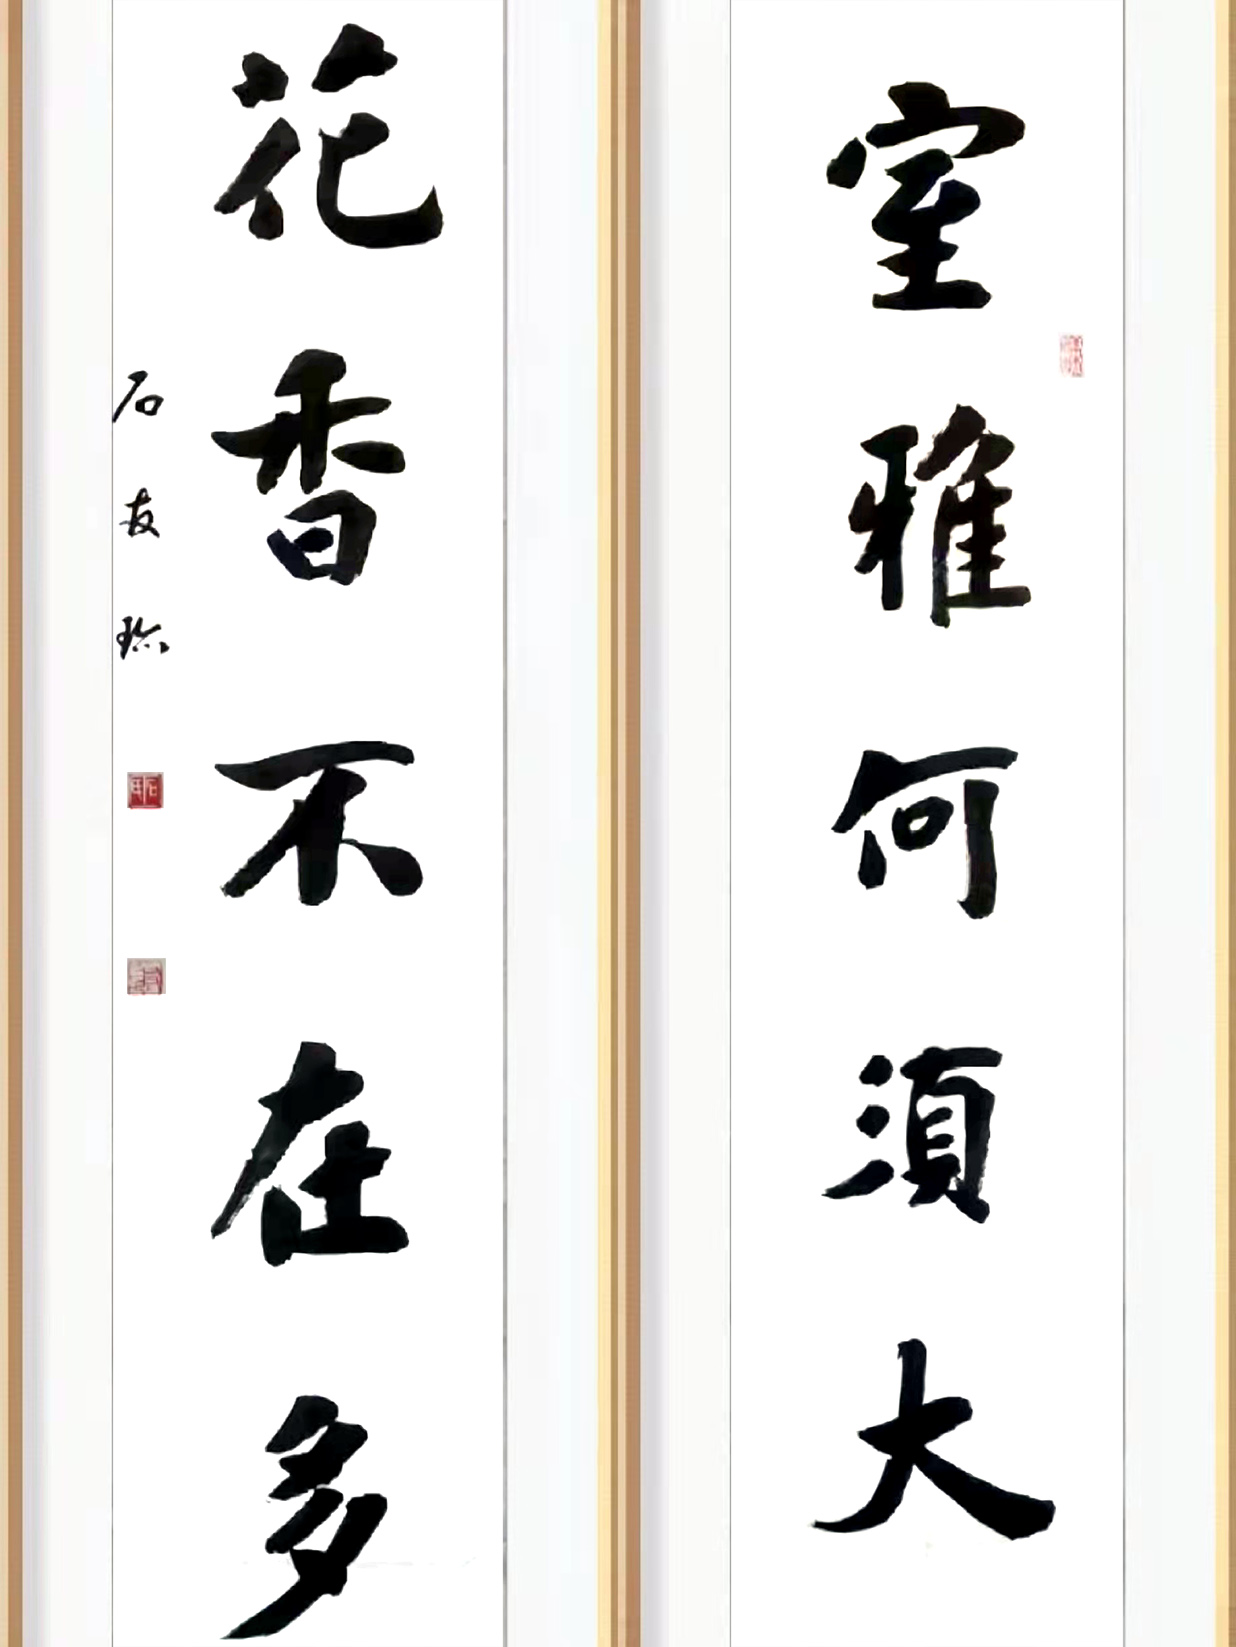 室雅何须大
花香不在多
石友珎